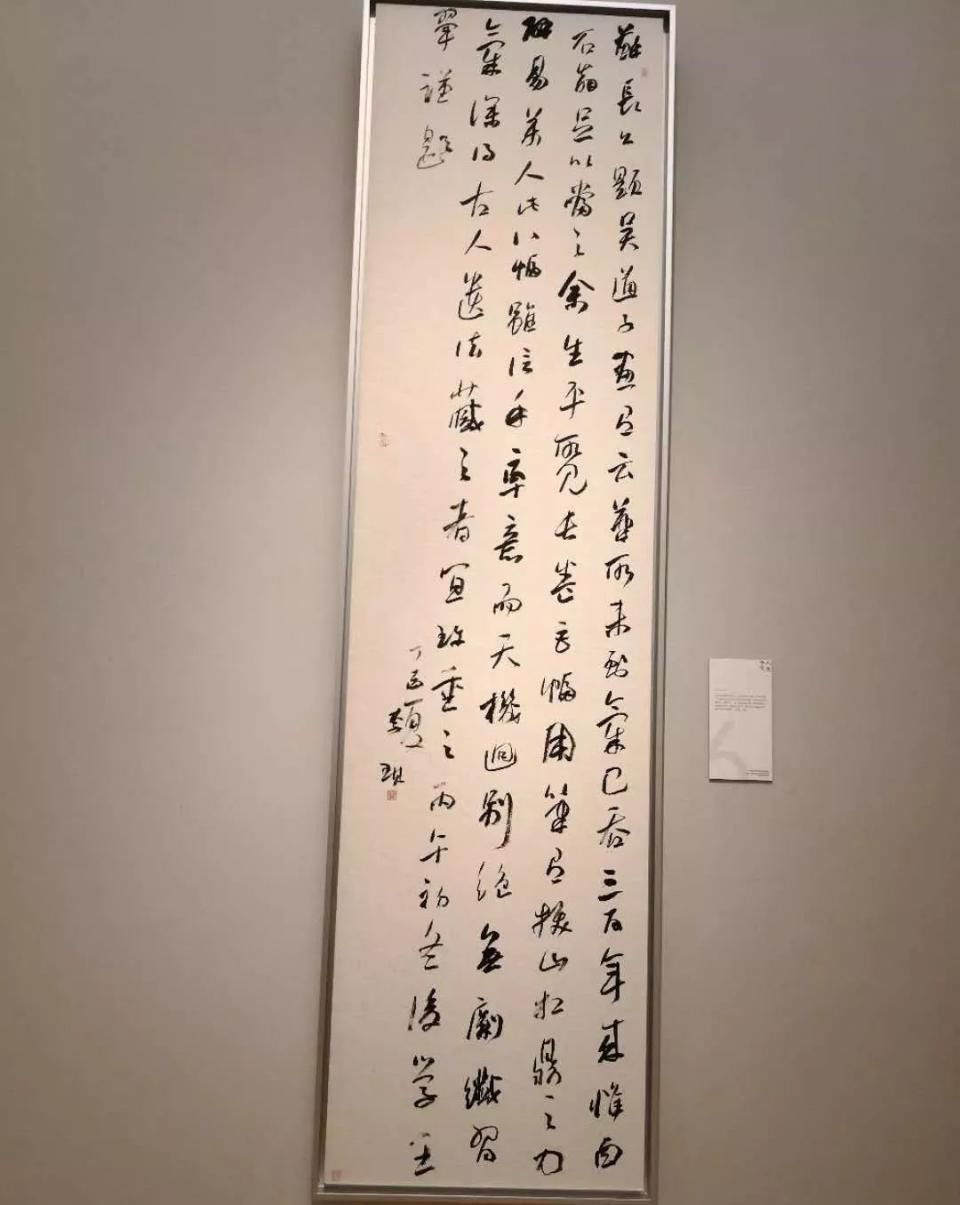 蘇長公題吳道子畫有云筆所未到氣已吞三百年來惟白
石翁足以當之余生平所見長卷巨幅用筆有拔山扛鼎之力
易人此八幅雖信手率意而天機迥別絕無纖習
氣深得古人遺法藏之者宜珍重之丙午初冬後學王
翬謹題
丁酉夏